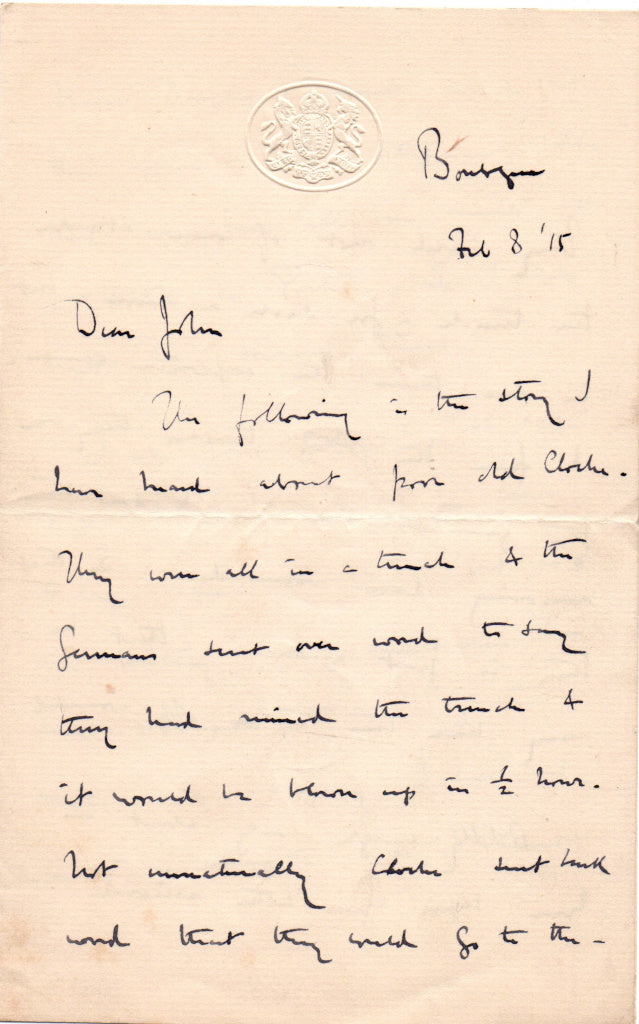 Boulogne
Feb 8 '15
Dear John
The following is the story I
have heard about poor old Cloche.
They were all in a trench & the
Germans sent over word to say
they had mined the trench &
it would be blown up in ½ hour.
Not unnaturally Cloche sent back
word that they could go to the -